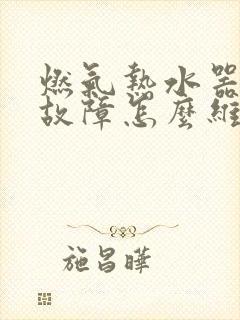 燃氣熱水器
故障怎麼維
施昌曄